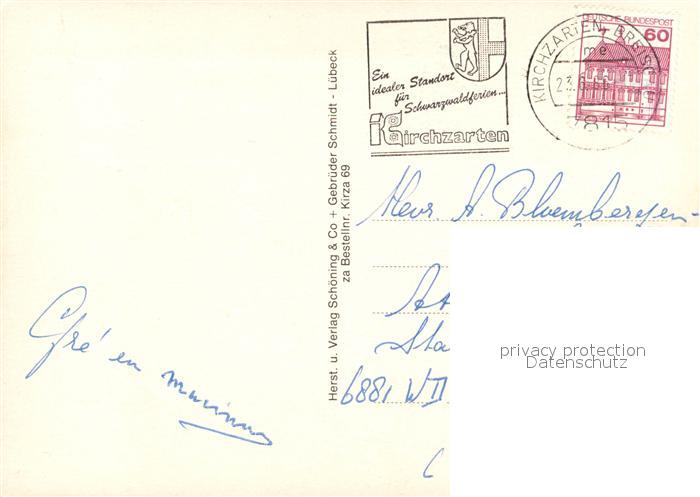 Ein
idealer Standort
für
Schwarzwaldferien...
Kirchzarten
KIRCHZARTEN, BREISG
me
7815
DEUTSCHE BUNDESPOST
60
Herst. u. Verlag Schöning & Co + Gebrüder Schmidt - Lübeck
za Bestellnr. Kirza 69
Mevr. A. Bloembergen-
At
Sta
6881 WD
Gré en Marinus
privacy protection
Datenschutz